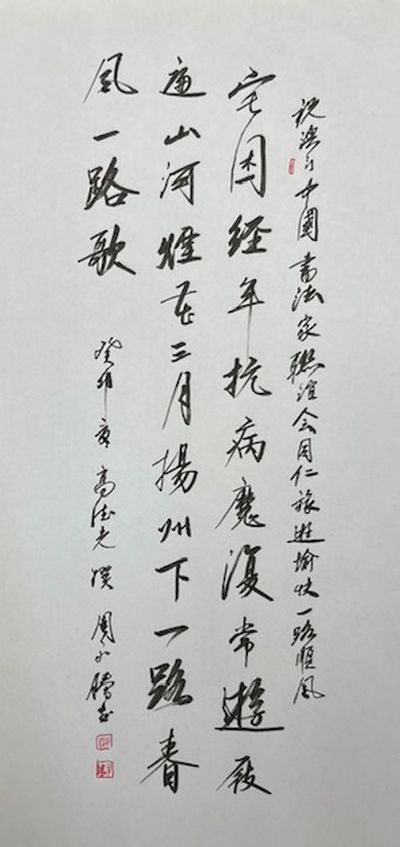 祝澳门中國書法家聯誼会同仁旅遊愉快一路順風
宅困經年抗病魔復常遊屐
遍山河煙花三月揚州下一路春
風一路歌
癸卯 高德光撰 周